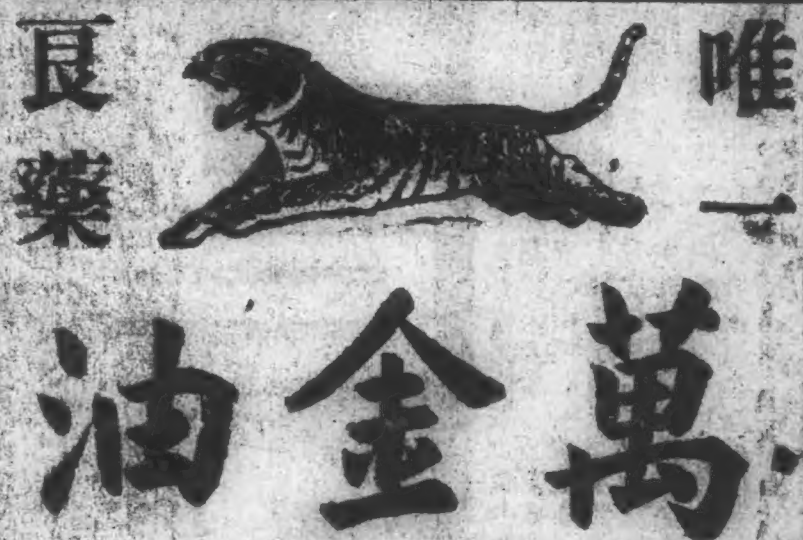 唯一
良藥
萬金油